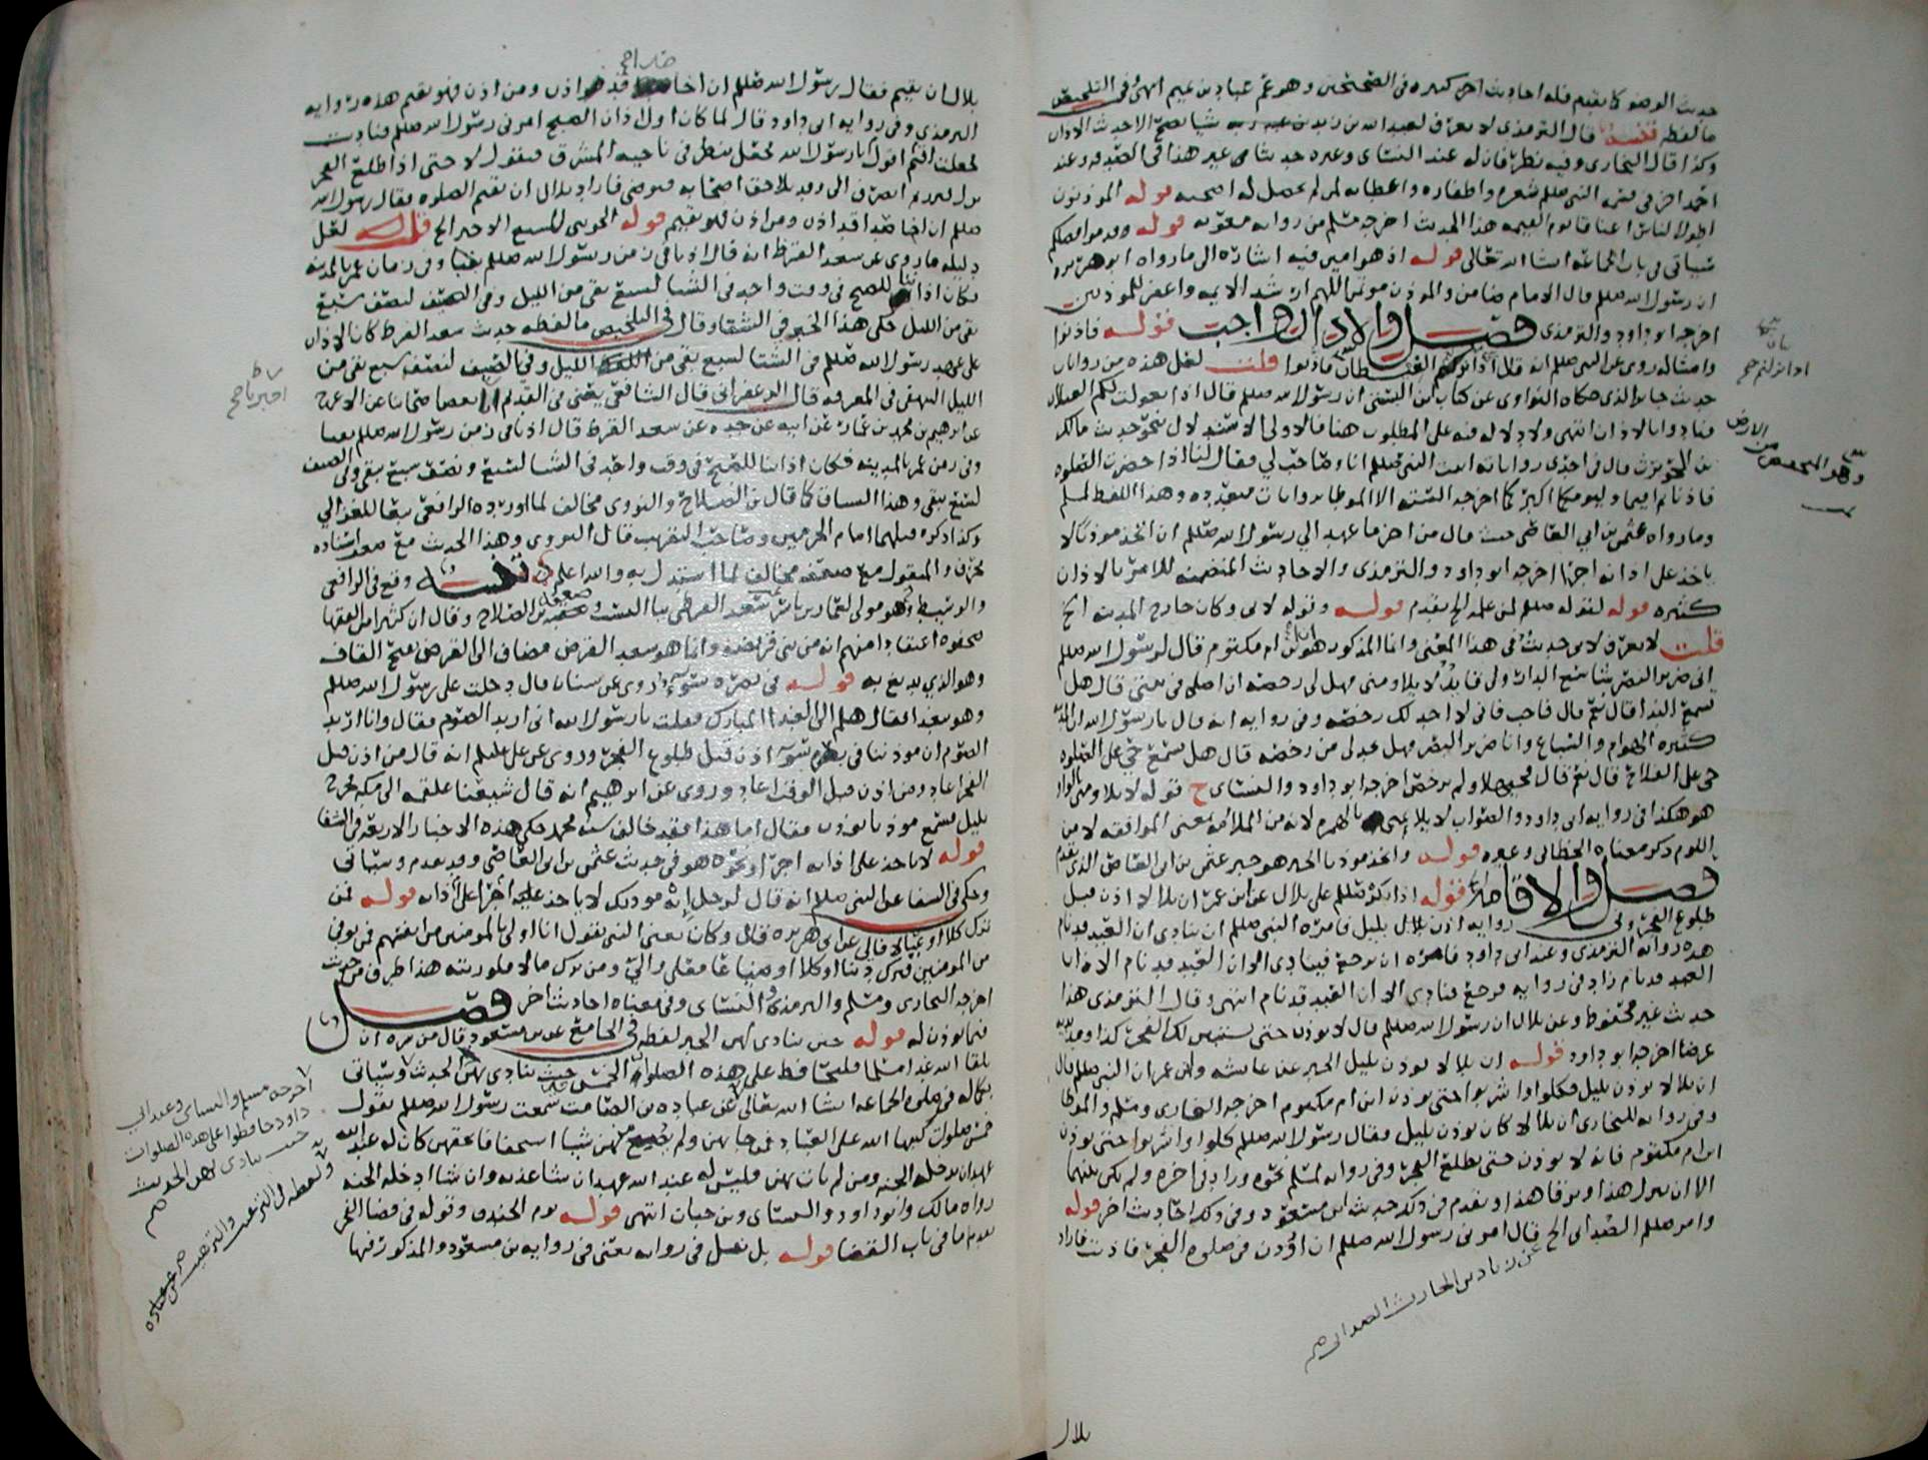 حديث الوضو كما تقدم فله احاديث اخر كثيره في الصحيحين وهو عم عباد بن تميم انتهى وفي التلخيص
ما لفظه تنبيه قال الترمذي لا يعرف لعبد الله بن زيد بن عبد ربه شيا يصح الا حديث الاذان
وكذا قال البخاري وفيه نظر فان له عند النسائ وغيره حديثا غير هذا في الصدقه وعند
احمد اخر في قسمه النبي صللم شعره واظفاره واعطايه لمن لم يحصل له اضحيه قوله الموذنون
اطول الناس اعناقا يوم القيمه هذا الحديث اخرجه مسلم من روايه معويه قوله وقدموا افضلكم
سياتي في باب الجماعه انشا الله تعالى قوله اذ هو امين فيه اشاره الى ما رواه ابو هريره
ان رسول الله صللم قال الامام ضامن والموذن موتمن اللهم ارشد الايمه واغفر للموذنين
اخرجه ابو داود والترمذي فصل والاذان واجب قوله فاذنوا
وامثاله روي عن النبي صللم انه قال اذا تغولت الغيلان فاذنوا قلت لعل هذه من روايات
حديث جابر الذي حكاه النواوي عن كتاب ابن السني ان رسول الله صللم قال اذا تغولت لكم الغيلان
فنادوا بالاذان انتهى ولا دلاله فيه على المطلوب هنا فالاولى الاستدلال بنحو حديث مالك
بن الحويرث قال في احدى رواياته اتيت النبي صللم انا وصاحب لي فقال لنا اذا حضرت الصلوه
فاذنا ثم اقيما وليومكما اكبركما اخرجه السته الا الموطا بروايات متعدده وهذا اللفظ لمسلم
وما رواه عثمن بن ابي العاص حيث قال من اخر ما عهد الي رسول الله صللم ان اتخذ موذنا لا
ياخذ على اذانه اجرا اخرجه ابو داود والترمذي والاحاديث المتضمنه للامر بالاذان
كثيره قوله لقوله صللم لمن علمه الخ تقدم قوله وقوله لابي وكان خارج المدينه الخ
قلت لا يعرف لابي حديث في هذا المعنى وانما المذكور هو ابن ام مكتوم قال لرسول الله صللم
اني ضرير البصر شاسع الدار ولي قايد لا يلاومني فهل لي رخصه ان اصلي في بيتي قال هل
تسمع الندا قال نعم قال فاجب فاني لا اجد لك رخصه وفي روايه انه قال يا رسول الله ان المدينه
كثيره الهوام والسباع وانا ضرير البصر فهل تجد لي من رخصه قال هل تسمع حي على الصلوه
حي على الفلاح قال نعم قال فحيهلا ولم يرخص اخرجه ابو داود والنسائ ح قوله لا يلاومني بالواو
هو هكذا في روايه ابي داود والصواب لا يلايمني بالهمزه لانه من الملايمه بمعنى الموافقه لا من
اللوم ذكر معناه الخطابي وغيره قوله واتخذ موذنا الخبر هو خبر عثمن بن ابي العاص الذي تقدم
فصل والاقامه قوله اذ انكر صللم على بلال عن ابن عمر ان بلالا اذن قبل
طلوع الفجر وفي روايه اذن بلال بليل فامره النبي صللم ان ينادي ان العبد قد نام
هذه روايه الترمذي وعند ابي داود فامره ان يرجع فينادي الا ان العبد قد نام الا ان
العبد قد نام زاد في روايه فرجع فنادى الا ان العبد قد نام انتهى وقال الترمذي هذا
حديث غير محفوظ وعن بلال ان رسول الله صللم قال لا توذن حتى يستبين لك الفجر كذا ومد يديه
عرضا اخرجه ابو داود قوله ان بلالا يوذن بليل الخبر عن عايشه وابن عمر ان النبي صللم قال
ان بلالا يوذن بليل فكلوا واشربوا حتى يوذن ابن ام مكتوم اخرجه البخاري ومسلم والموطا
وفي روايه للبخاري ان بلالا كان يوذن بليل فقال رسول الله صللم كلوا واشربوا حتى يوذن
ابن ام مكتوم فانه لا يوذن حتى يطلع الفجر وفي روايه لمسلم نحوه وزاد في اخره ولم يكن بينهما
الا ان ينزل هذا ويرقا هذا وتقدم في ذلك حديث ابن مسعود وفي ذلك احاديث اخر قوله
وامر صللم الصدائي الخ قال امرني رسول الله صللم ان اوذن في صلوه الفجر فاذنت فاراد
عن زياد بن الحارث الصدائي صح
بلال
وهو المنخفض من الارض
بلال ان يقيم فقال رسول الله صللم ان اخا صدا قد اذن ومن اذن فهو يقيم هذه روايه
الترمذي وفي روايه ابي داود قال لما كان اول اذان الصبح امرني رسول الله صللم فناديت
فجعلت اقول اقيم يا رسول الله فجعل ينظر في ناحيه المشرق فيقول لا حتى اذا طلع الفجر
نزل فبرز ثم انصرف الي وقد تلاحق اصحابه فتوضى فاراد بلال ان يقيم الصلوه فقال رسول الله
صللم ان اخا صدا قد اذن ومن اذن فهو يقيم قوله الجويني للسبع الاخير الخ قلت لعل
دليله ما روي عن سعد القرظ انه قال اذنا في زمن رسول الله صللم بقبا وفي زمان عمر بالمدينه
فكان اذاننا للصبح في وقت واحد في الشتا لسبع يبقى من الليل وفي الصيف لنصف سبع
يبقى من الليل حكى هذا الخبر في الشفا وقال في التلخيص ما لفظه حديث سعد القرظ كان الاذان
على عهد رسول الله صللم في الشتا لسبع يبقى من الليل وفي الصيف لنصف سبع يبقى من
الليل البيهقي في المعرفه قال الزعفراني قال الشافعي يعني في القديم انا بعض اصحابنا عن الاعرج
عن ابرهيم بن محمد بن عمار عن ابيه عن جده عن سعد القرظ قال اذنا في زمن رسول الله صللم بقبا
وفي زمن عمر بالمدينه فكان اذاننا للصبح في وقت واحد في الشتا لسبع ونصف سبع يبقى وفي الصيف
لسبع يبقى وهذا السياق كما قال بن الصلاح والنووي مخالف لما اورده الرافعي تبعا للغزالي
وكذا ذكره قبلهما امام الحرمين وصاحب التقريب قال النووي وهذا الحديث مع ضعف اسناده
محرف والمنقول مع ضعفه مخالف لما استدل به والله اعلم تنبيه وقع في الرافعي
والوسيط وهو مولى لعمار بن ياسر سعد القرظي بيا النسب وتعقبه بن الصلاح وقال ان كثيرا من الفقها
صحفوه اعتقادا منهم انه من بني قريضه وانما هو سعد القرض مضاف الى القرض بفتح القاف
وهو الذي يدبغ به قوله في نصره روي عن سنان قال دخلت على رسول الله صللم
وهو يتغدا فقال هلم الى الغدا المبارك فقلت يا رسول الله اني اريد الصوم فقال وانا اريد
الصوم ان موذننا في بصره سوء اذن قبل طلوع الفجر وروي عن علي عليلم انه قال من اذن قبل
الفجر اعاد ومن اذن قبل الوقت اعاد وروي عن ابرهيم انه قال شيعنا علقمه الى مكه فخرج
بليل فسمع موذنا يوذن فقال اما هذا فقد خالف سنه محمد حكى هذه الاخبار الاربعه في الشفا
قوله لا ياخذ على اذانه اجرا ونحوه هو في حديث عثمن بن ابي العاص وقد تقدم وسياتي
وحكى في الشفا عن النبي صللم انه قال لرجل انه موذنك لا ياخذ عليه اجرا على اذانه قوله فمن
ترك كلا او عيالا فالي عن ابي هريره قال وكان يعني النبي يقول انا اولى بالمومنين من انفسهم فمن توفي
من المومنين فترك دينا او كلا او ضياعا فعلي والي ومن ترك مالا فلورثته هذا طرف من حديث
اخرجه البخاري ومسلم والترمذي والنسائ وفي معناه احاديث اخر فصل
فيما يوذن له قوله حيث ينادى بهن الخبر لفظه في الجامع عن بن مسعود قال من سره ان
يلقا الله غدا مسلما فليحافظ على هذه الصلوات الخمس حيث ينادى بهن الحديث وسياتي
بكماله في صلوه الجماعه انشا الله تعالى عن عباده بن الصامت سمعت رسول الله صللم يقول
خمس صلوات كتبهن الله على العباد فمن جا بهن ولم يضيع منهن شيا استخفافا بحقهن كان له عند الله
عهد ان يدخله الجنه ومن لم يات بهن فليس له عند الله عهد ان شا عذبه وان شا ادخله الجنه
رواه مالك وابو داود والنسائ وبن حبان انتهى قوله يوم الخندق وقوله في قضا الفجر
تقدما في باب القضا قوله بل نقل في روايه يعني في روايه بن مسعود والمذكور فيها
اخرجه مسلم والنسائ وعند ابي
داود حافظوا على هذه الصلوات
حيث ينادى بهن الحديث
صح
ولفظه في الترغيب والترهيب عن عباده